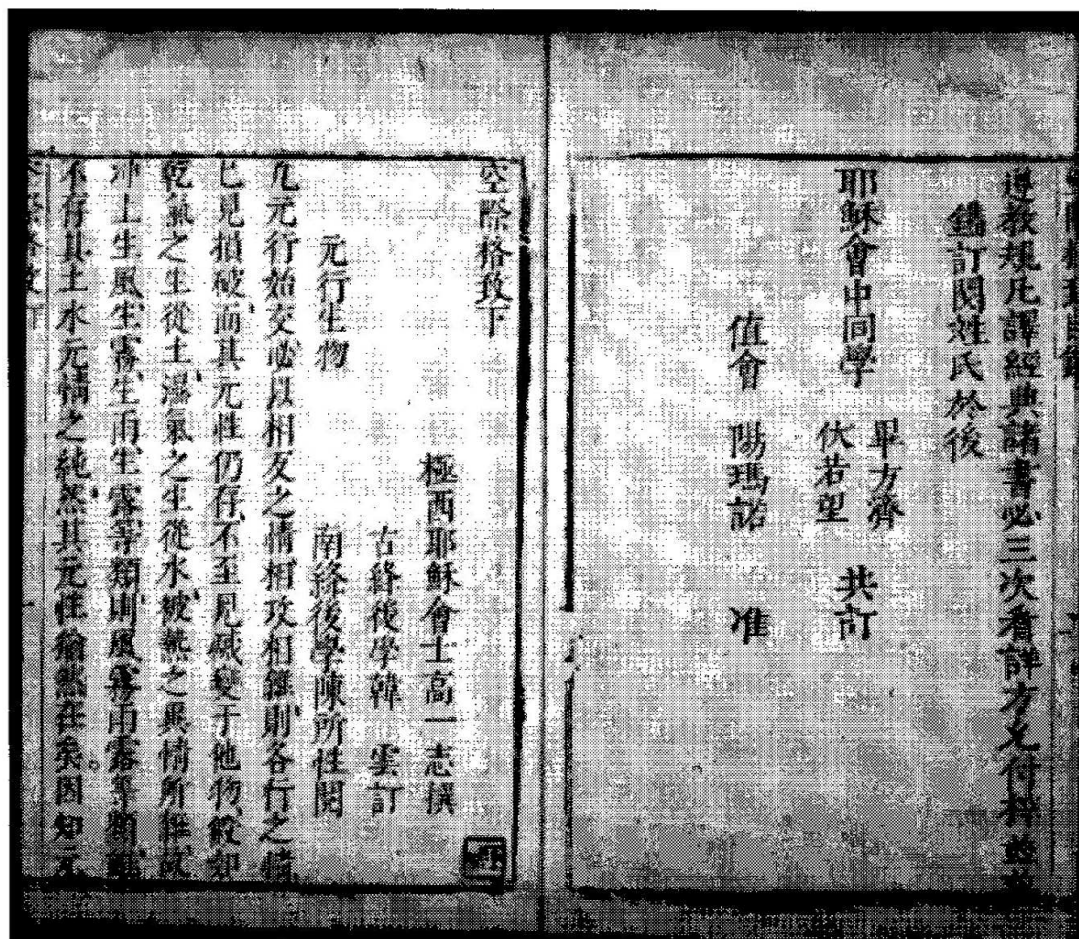 遵教規凡譯經典諸書必三次看詳方允付梓茲並
鐫訂閱姓氏於後
耶穌會中同學 畢方濟 伏若望 共訂
值會 陽瑪諾 准
空際格致下
極西耶穌會士高一志撰
古絳後學韓 雲訂
南絳後學陳所性閱
元行生物
凡元行始交必以相反之情相攻相雜則各行之情
已見損破而其元性仍存不至見滅變于他物假如
乾氣之生從土濕氣之生從水被熱之異情所
沖上生風生霧生雨生露等類則風霧雨露等類
不存其土水元情之純然其元性猶然在矣因知不